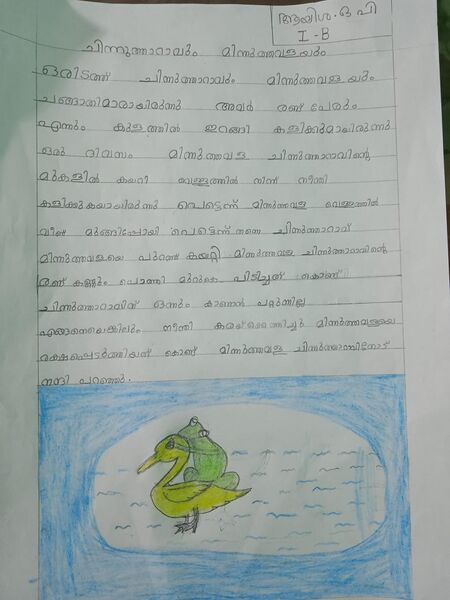 ആയിശ. ഒ. പി
I - B
ചിന്നുത്താറാവും മിന്നുത്തവളയും
ഒരിടത്ത് ചിന്നുത്താറാവും മിന്നുത്തവളയും
ചങ്ങാതിമാരായിരുന്നു അവർ രണ്ട് പേരും
എന്നും കുളത്തിൽ ഇറങ്ങി കളിക്കുമായിരുന്നു
ഒരു ദിവസം മിന്നുത്തവള ചിന്നുത്താറാവിന്റെ
മുകളിൽ കയറി വെള്ളത്തിൽ നിന്ന് നീന്തി
കളിക്കുകയായിരുന്നു പെട്ടെന്ന് മിന്നുത്തവള വെള്ളത്തിൽ
വീണ് മുങ്ങിപ്പോയി പെട്ടെന്ന് തന്നെ ചിന്നുത്താറാവ്
മിന്നുത്തവളയെ പുറത്ത് കയറ്റി മിന്നുത്തവള ചിന്നുത്താറാവിന്റെ
രണ്ട് കണ്ണും പൊത്തി മുറുകെ പിടിച്ചത് കൊണ്ട്
ചിന്നുത്താറാവിന് ഒന്നും കാണാൻ പറ്റുന്നില്ല
എങ്ങനെയെങ്കിലും നീന്തി കരയ്ക്കെത്തിച്ചു മിന്നുത്തവളയെ
രക്ഷപ്പെടുത്തിയത് കൊണ്ട് മിന്നുത്തവള ചിന്നുത്താറാവിനോട്
നന്ദി പറഞ്ഞു.